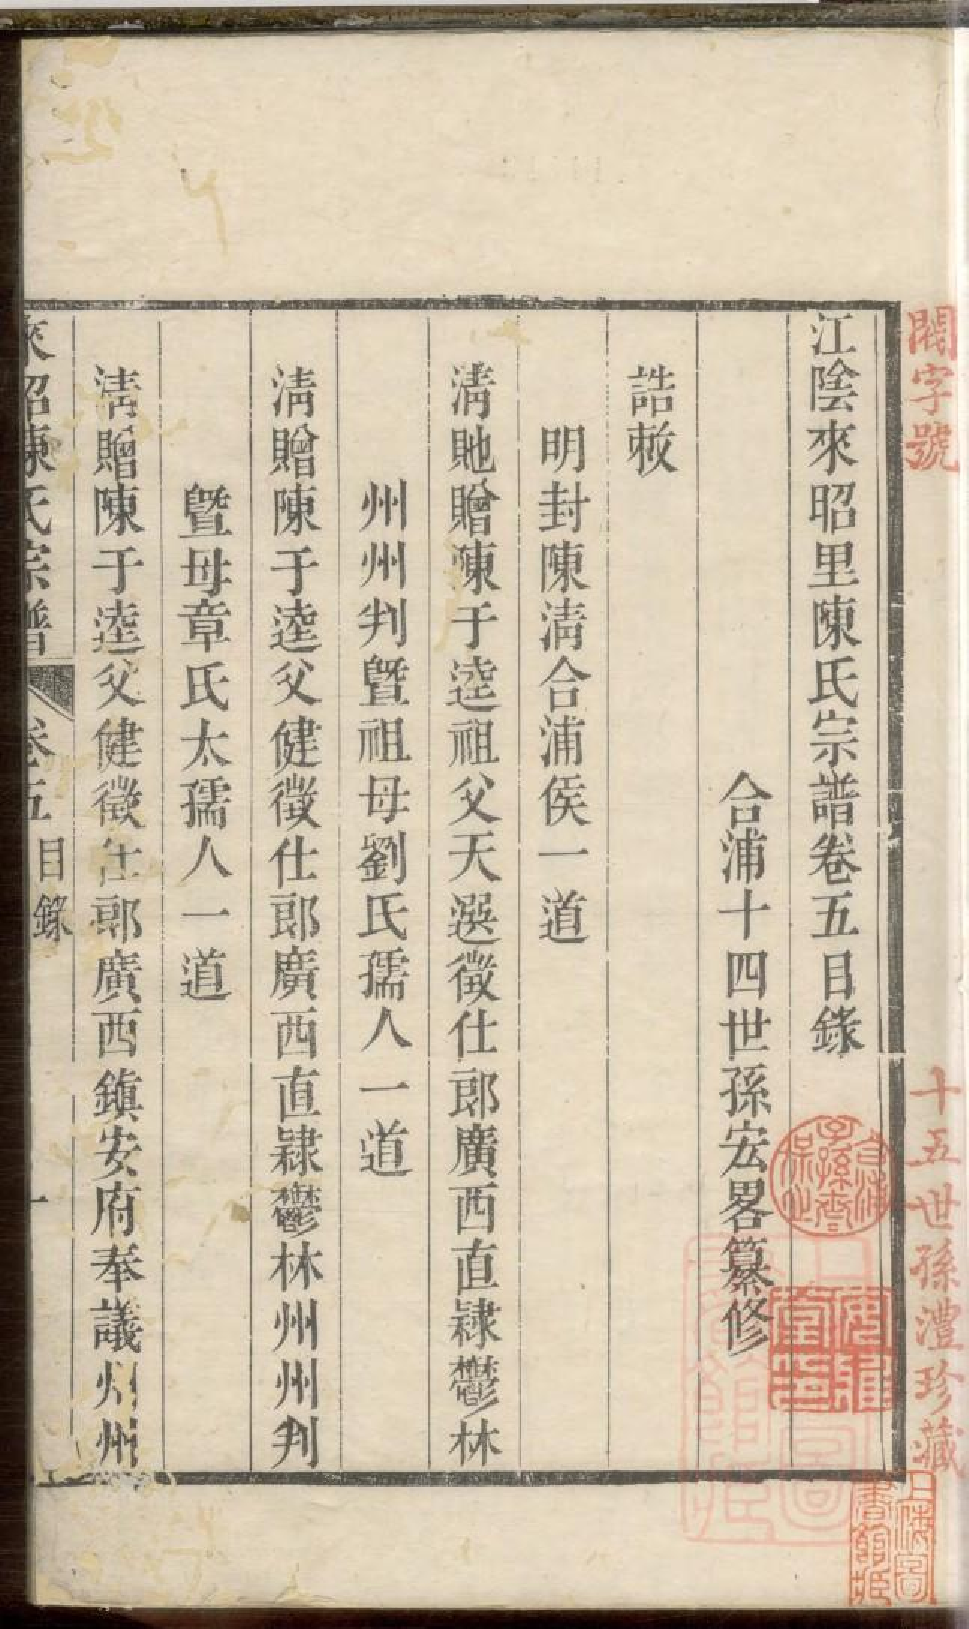 閣字號
十五世孫澧珍藏
江陰來昭里陳氏宗譜卷五目錄
合浦十四世孫宏畧纂修
誥敕
明封陳淸合浦侯一道
淸貤贈陳于逵祖父天選徵仕郎廣西直隸鬱林
州州判曁祖母劉氏孺人一道
淸贈陳于逵父健徵仕郎廣西直隸鬱林州州判
曁母章氏太孺人一道
淸贈陳于逵父健徵仕郎廣西鎮安府奉議州州
來昭陳氏宗譜 卷五 目錄 一